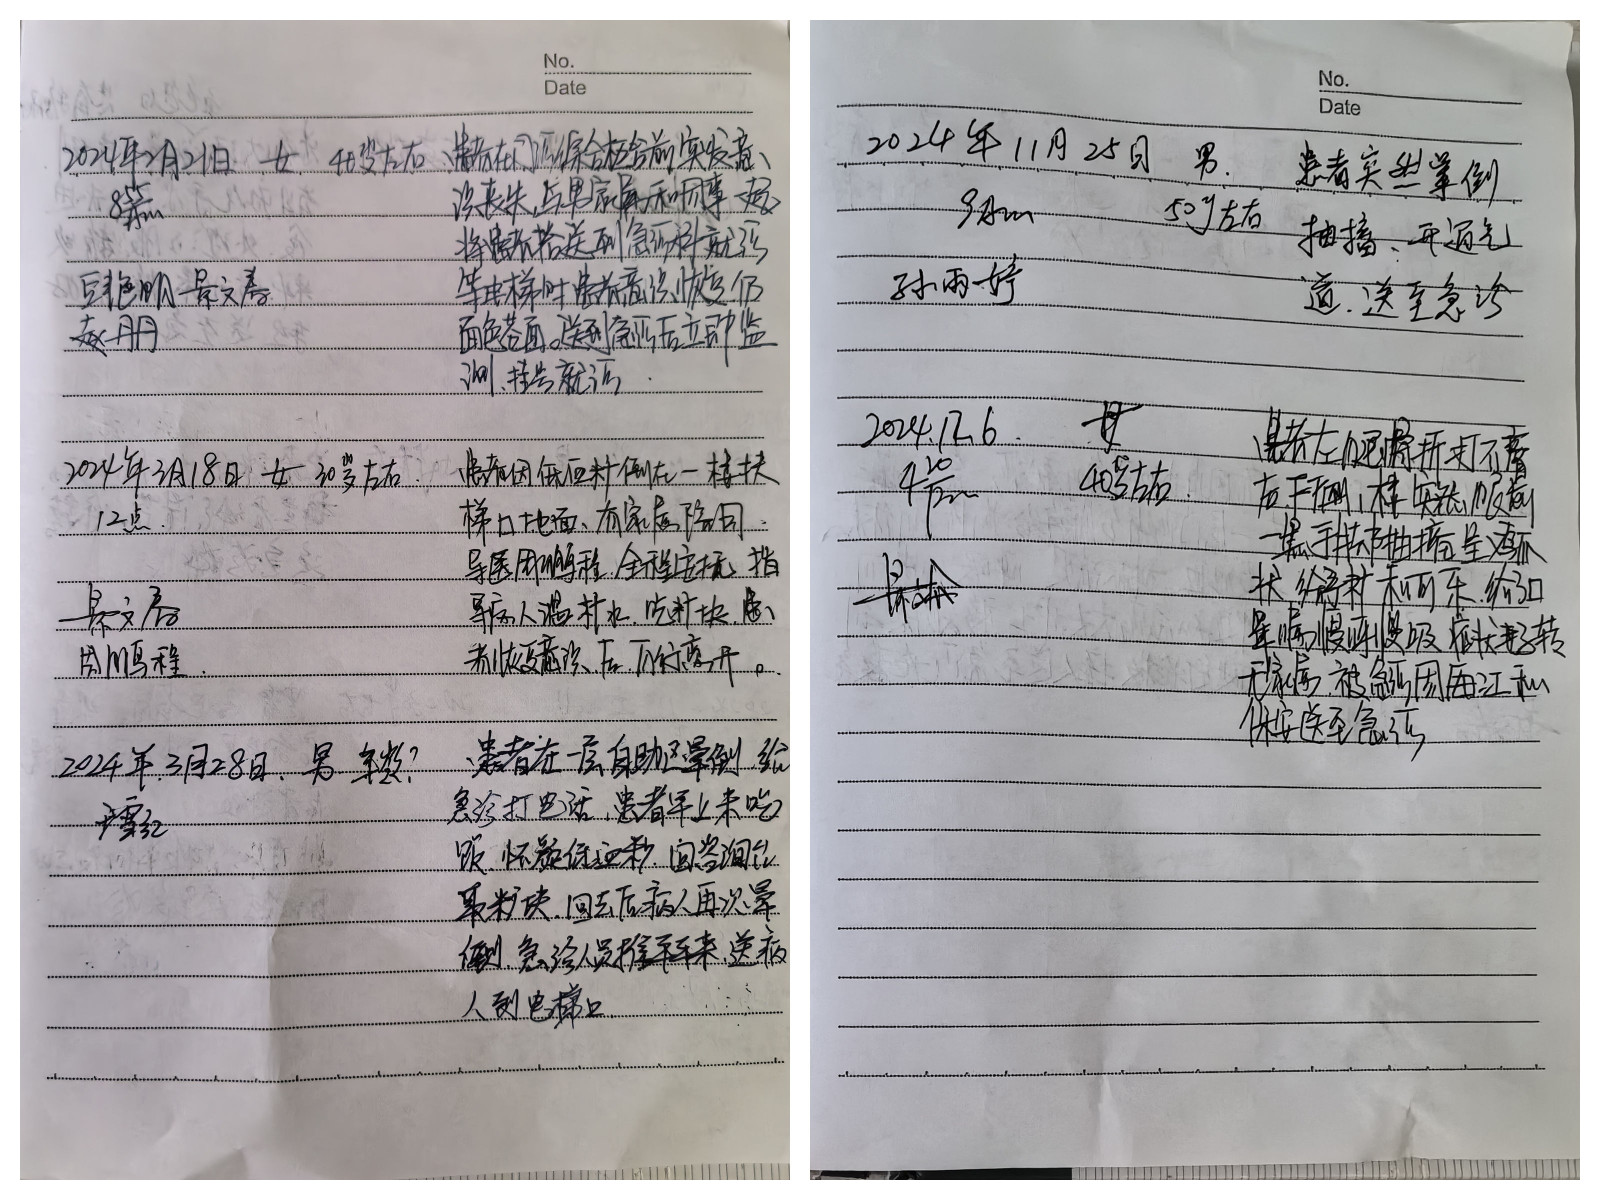 No.
Date
2024年2月21日 女 40岁左右 患者在门诊综合柜台前突发意
识丧失,与男家属和同事一起
8 Am
将患者抬送到急诊科就诊
景文春 等电梯时患者意识恢复仍
赵丹丹 面色苍白。送到急诊后立即监
测、挂号就诊.
2024年3月18日 女 30岁左右. 患者因低血糖倒在一楼扶
12点. 梯口地面、有家属陪同.
导医周鹏程 全程 指
景文春 导病人温糖水.吃糖块.患
周鹏程. 者恢复意识后 离开。
2024年.3月28日. 男 年龄? 患者在一层自助区晕倒.给
急诊打电话,患者早上未吃
饭.怀疑低血糖.回咨询台
取糖块.回去后病人再次晕
倒.急诊人员推平车来.送病
人到电梯口.
No.
Date
2024年11月25日 男. 患者突然晕倒
9 Am 50岁左右 抽搐.开通气
孙雨婷 道.送至急诊
2024.12.6. 女 患者左 骨折
4 20 pm 40岁左右.
抽搐呈鸡爪
状 给 糖和可乐.给
慢呼慢吸 症状 转
无家属.被急诊周海江和
保安送至急诊